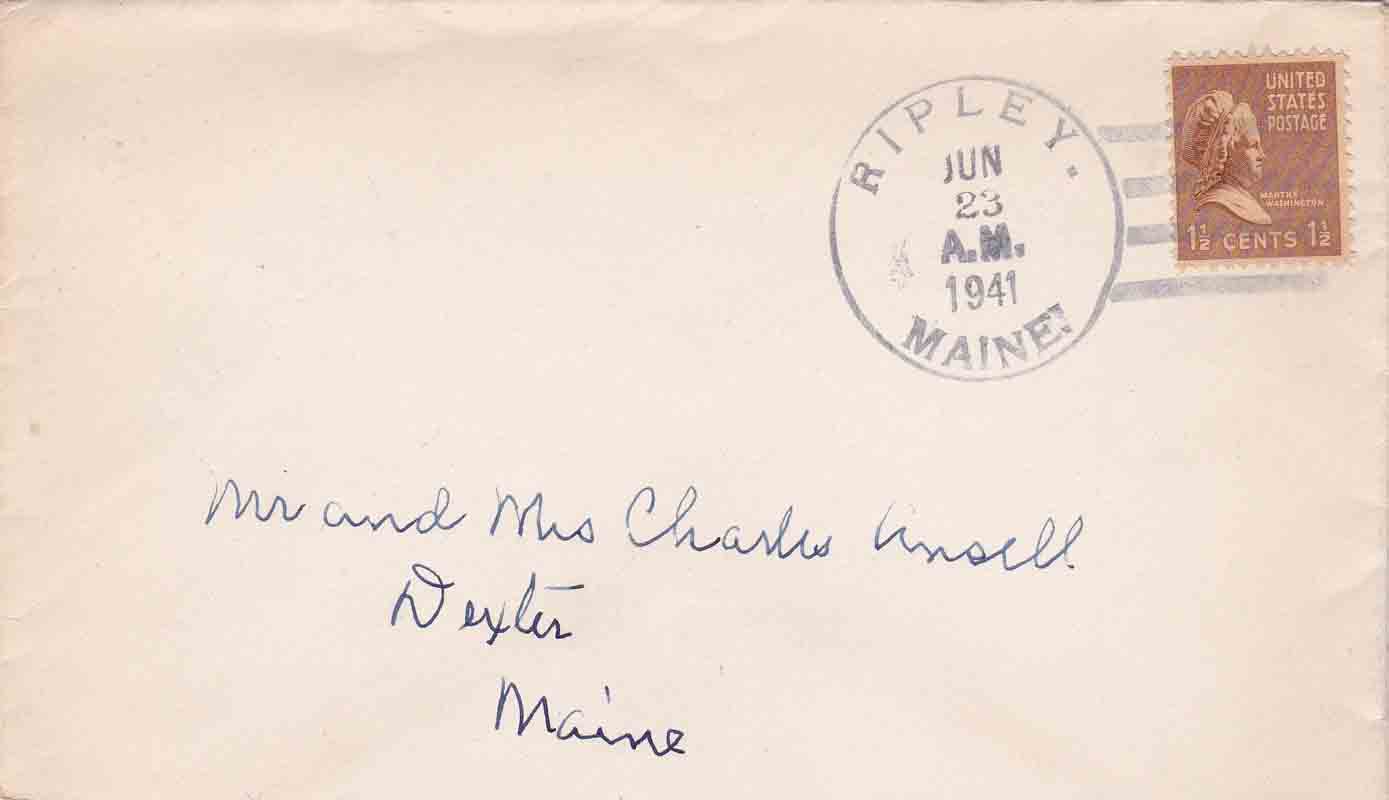 RIPLEY.
JUN
23
A.M.
1941
MAINE.
UNITED
STATES
POSTAGE
MARTHA
WASHINGTON
1½ CENTS 1½
Mr and Mrs Charles Ansell
Dexter
Maine